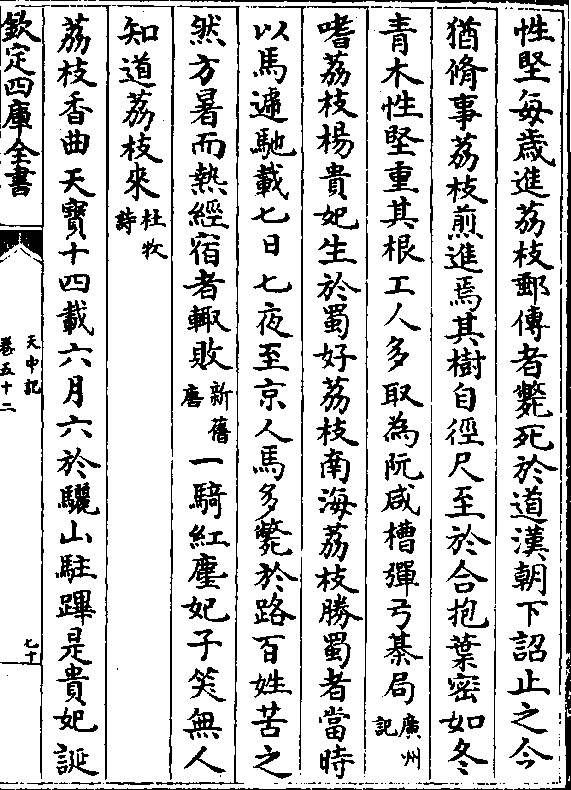 性堅每歲進荔枝郵傳者斃死於道漢朝下詔止之今
猶脩事荔枝煎進焉其樹自徑尺至於合抱葉密如冬
青木性堅重其根工人多取為阮咸槽彈弓棊局廣州記
嗜荔枝楊貴妃生於蜀好荔枝南海荔枝勝蜀者當時
以馬遞馳載七日七夜至京人馬多斃於路百姓苦之
然方暑而熱經宿者輙敗新舊唐一騎紅塵妃子笑無人
知道荔枝來杜牧詩
荔枝香曲天寶十四載六月六於驪山駐蹕是貴妃誕
欽定四庫全書
天中記
卷五十二
七十